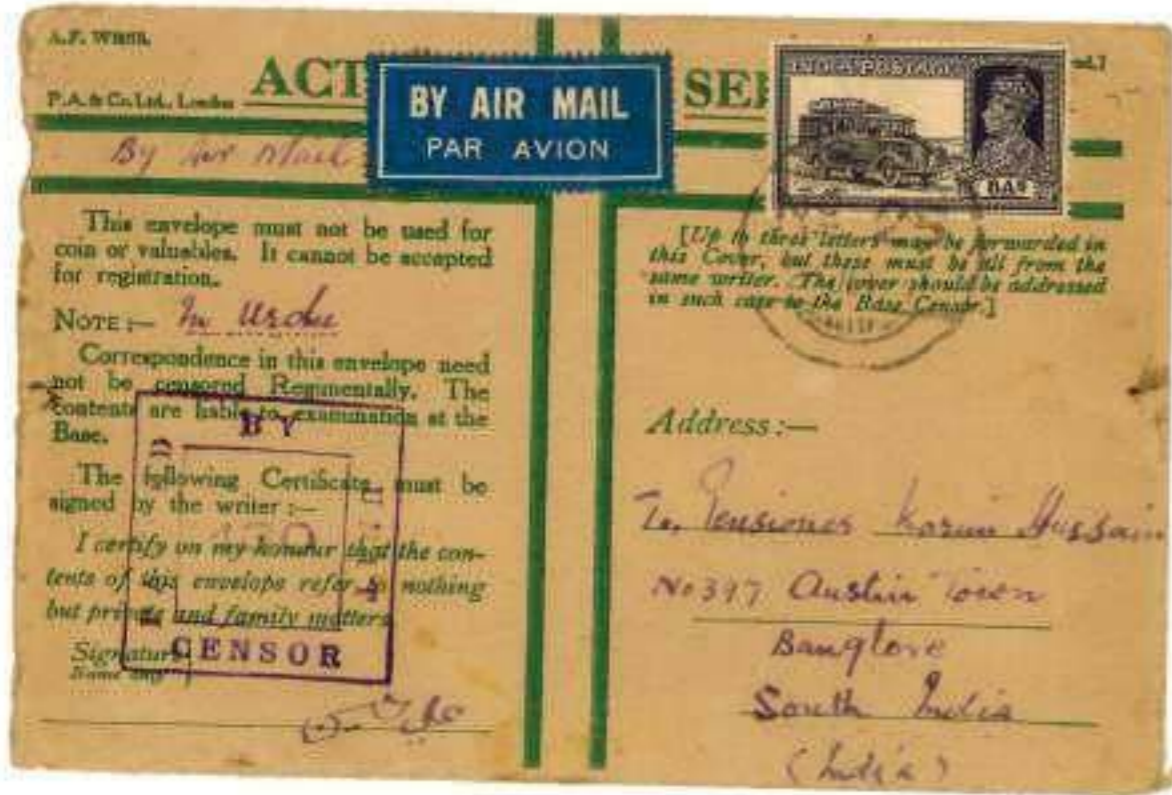 A.F. W3078.
P.A. & Co. Ltd., London
ACT
BY AIR MAIL
PAR AVION
SER
INDIA POSTAGE
8As
By Air Mail
This envelope must not be used for
coin or valuables. It cannot be accepted
for registration.
NOTE :— In Urdu
Correspondence in this envelope need
not be censored Regimentally. The
contents are liable to examination at the
Base.
The following Certificate must be
signed by the writer :—
I certify on my honour that the con-
tents of this envelope refer to nothing
but private and family matters
Signature
Name only
BY
CENSOR
[Up to three letters may be forwarded in
this Cover, but these must be all from the
same writer. The cover should be addressed
in such case to the Base Censor.]
Address :—
To, Pensioner Karim Hussain
No 397 Austin Town
Banglore
South India
(India)